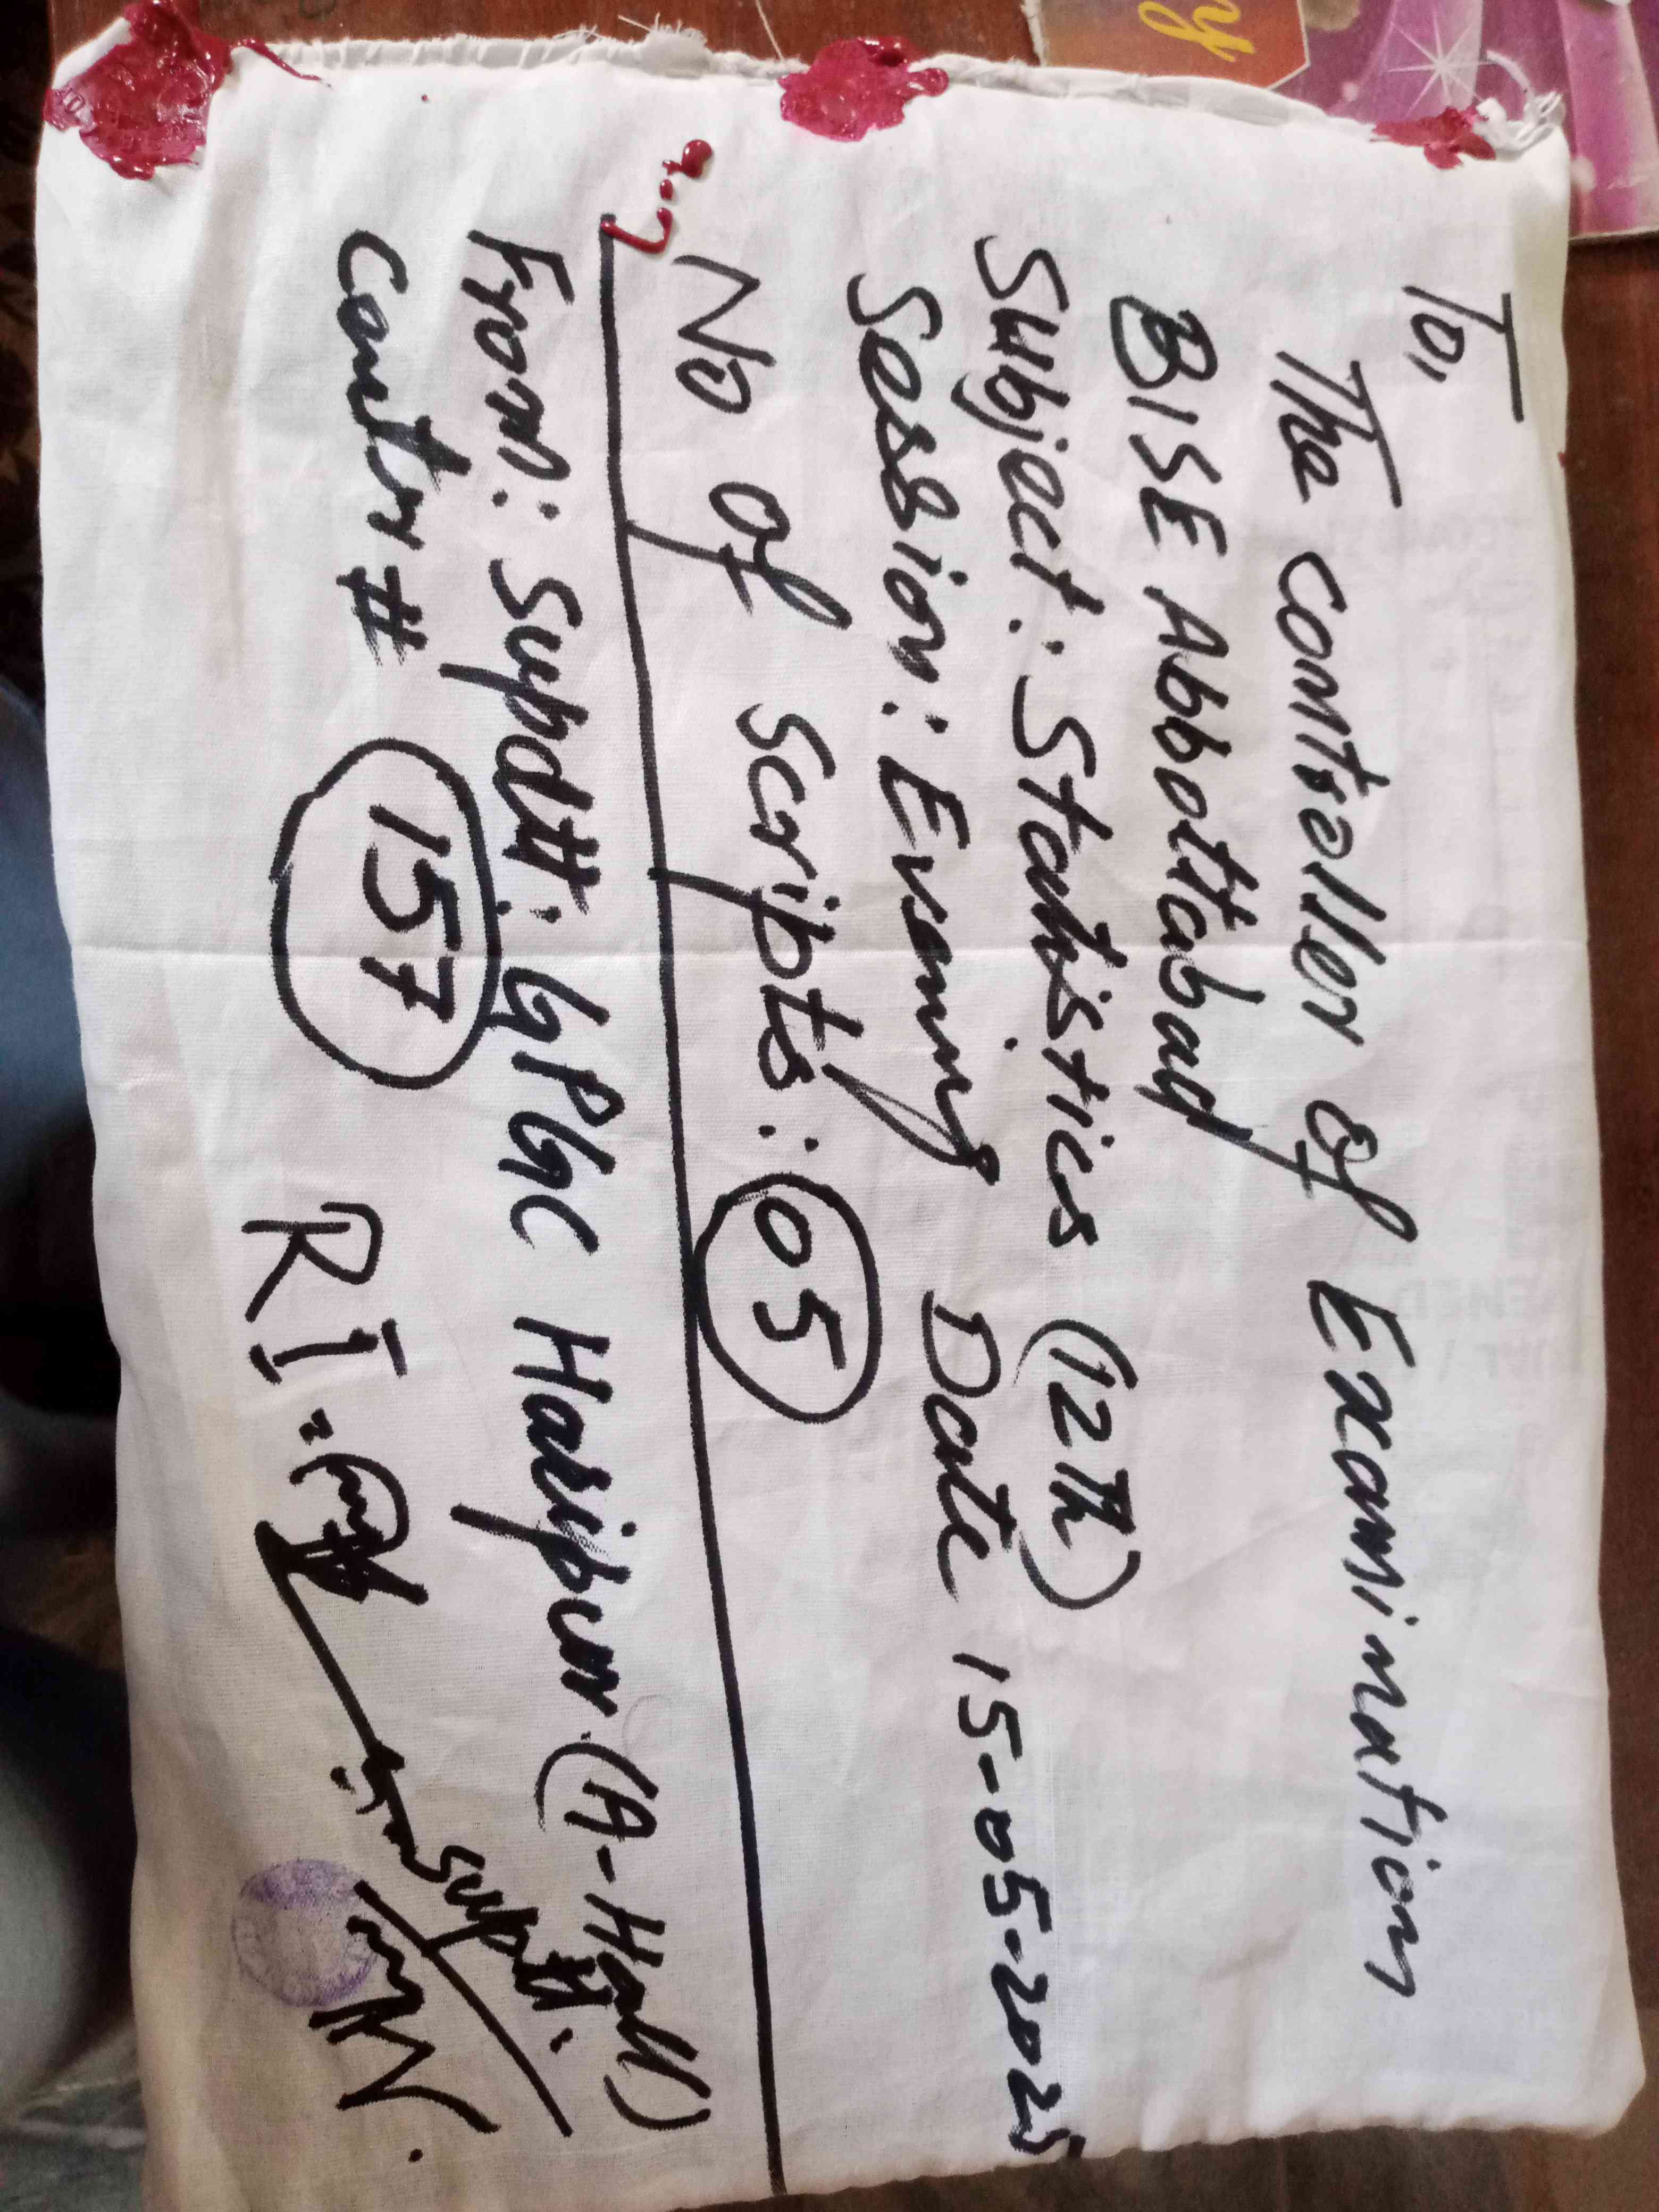 To,
The Controller of Examination
BISE Abbottabad
Subject: Statistics (12th)
Session: Evening Date 15-05-2025
No of Scripts: 05
From: Supdtt: GPGC Haripur (A-Hall)
Centr # 157 RI
Supdtt.
y